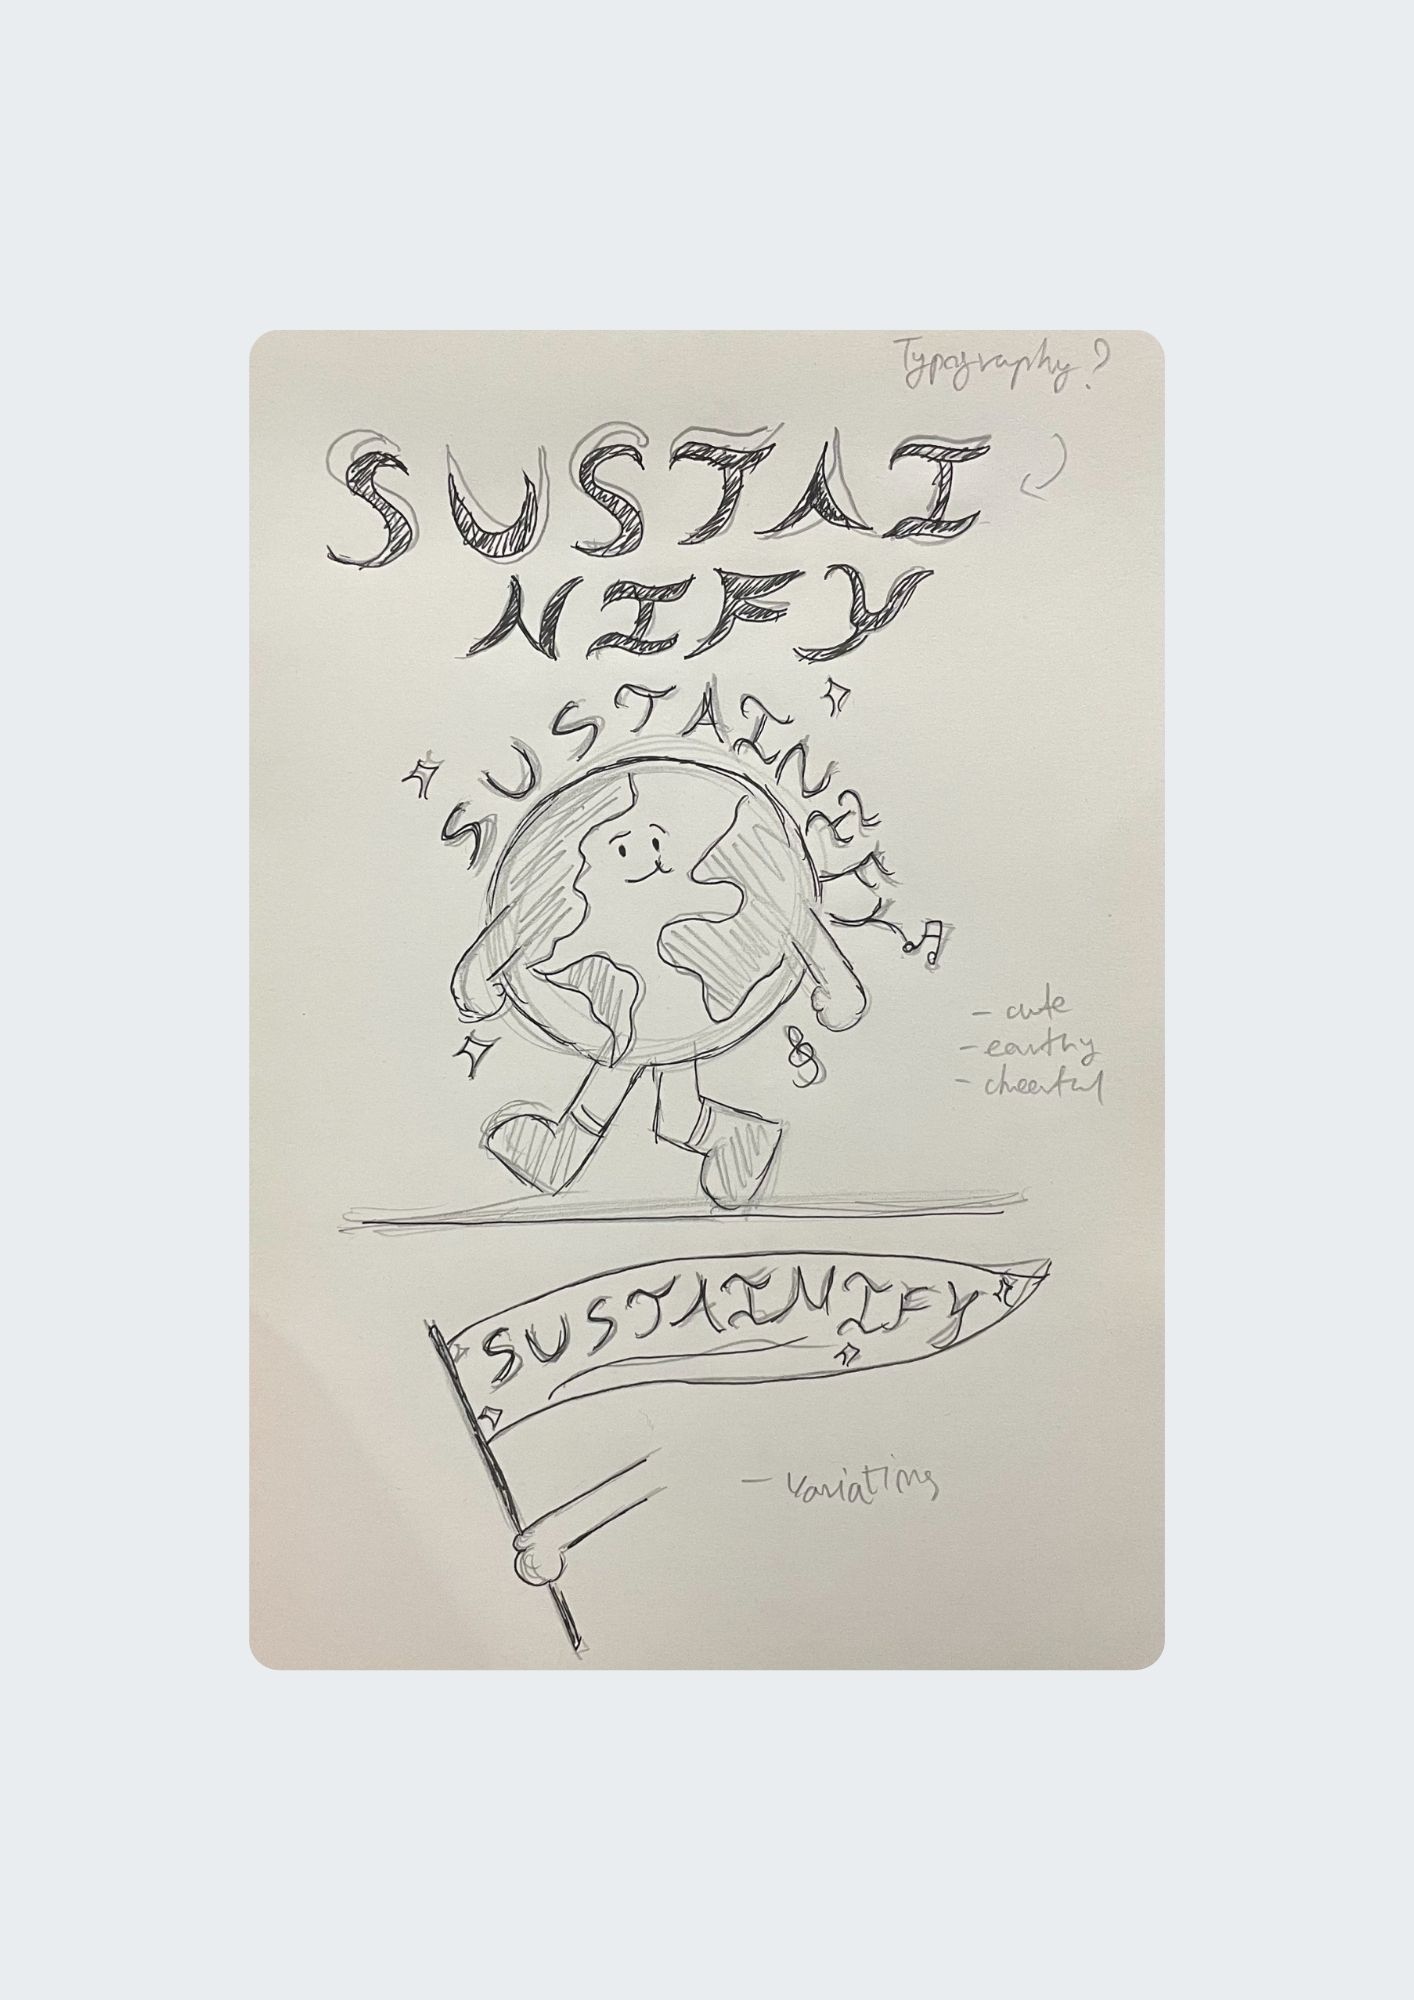 Typography?
SUSTAI
NIFY
SUSTAINIFY
- cute
- earthy
- cheerful
SUSTAINIFY
- Variations